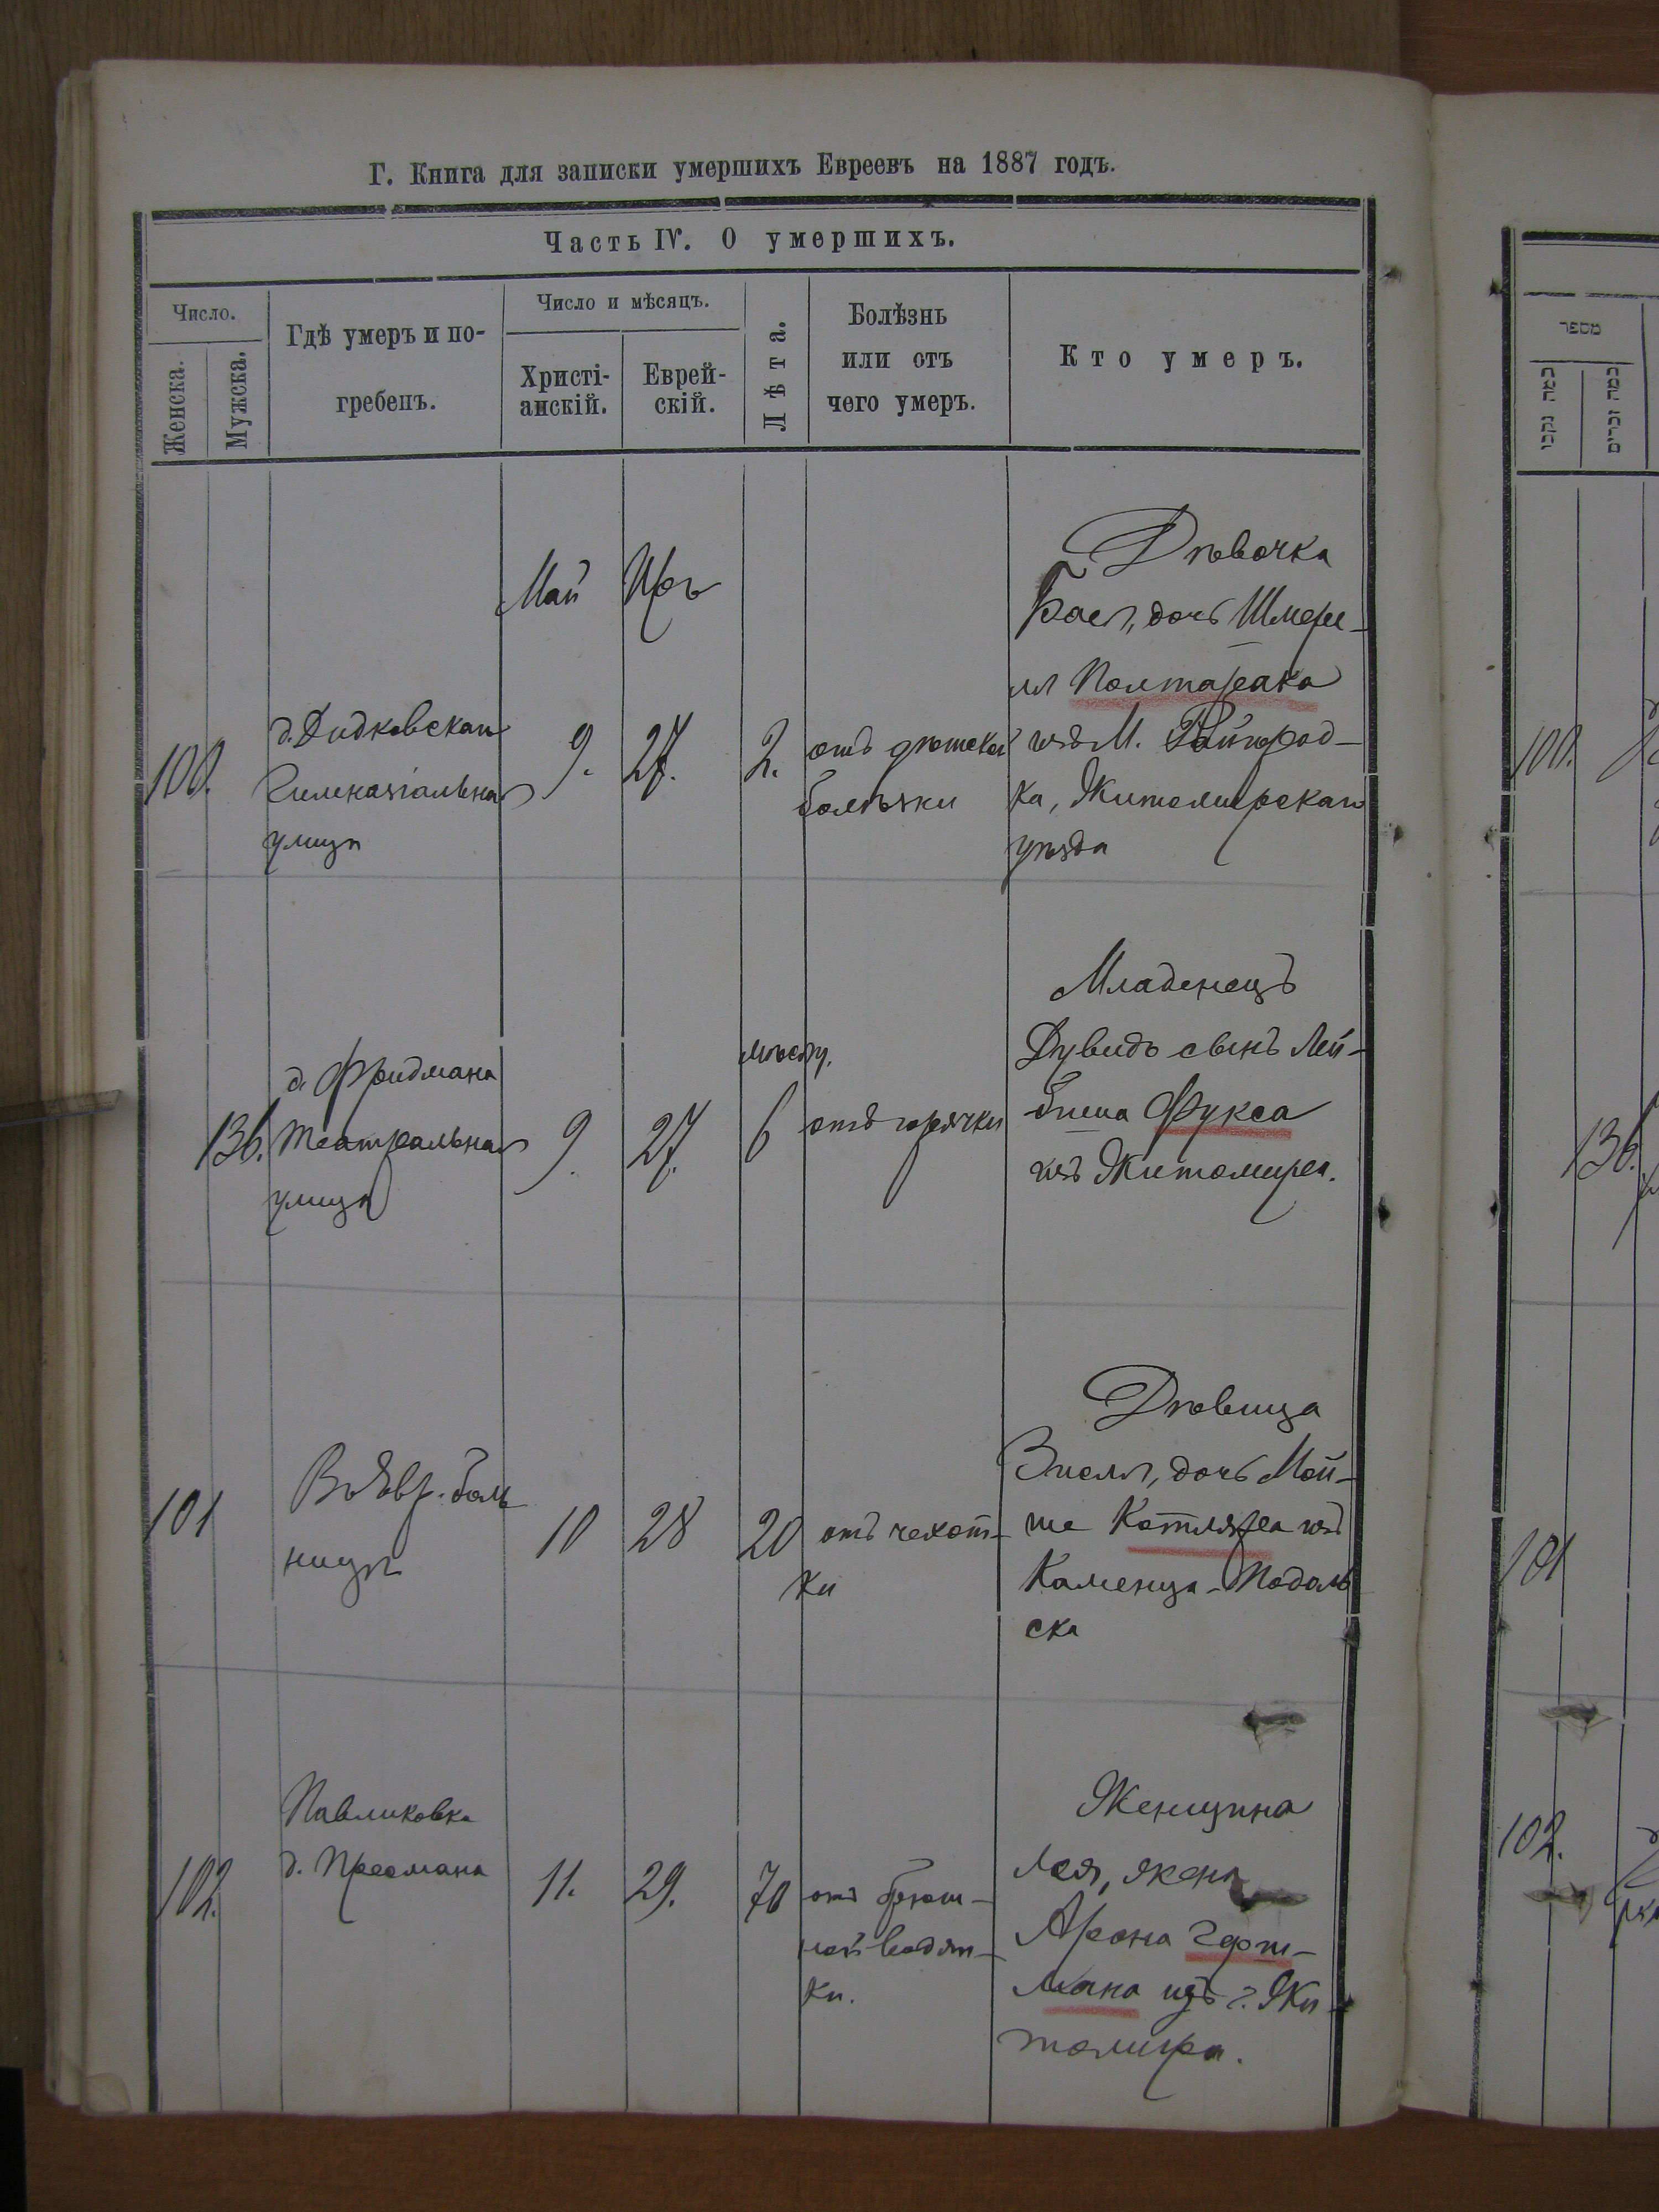 Г. Книга для записки умершихъ Евреевъ на 1887 годъ.
Часть IV. О умершихъ.
Число.
Женска.
Мужска.
Гдѣ умеръ и по-
гребенъ.
Число и мѣсяцъ.
Христі-
анскій.
Еврей-
скій.
Лѣта.
Болѣзнь
или отъ
чего умеръ.
Кто умеръ.
Май
Иръ
100.
д. Дидковской
Гимназіальная
улица
9.
27.
2.
отъ дѣтской
болѣзни
Дѣвочка
дочь Шмери-
ла Полтарака
изъ М. Райгород-
ка, Житомирскаго
уѣзда
136.
д. Фридмана
Театральная
улица
9.
27.
мѣсяц.
6
отъ горячки
Младенецъ
Дувидъ сынъ Лей-
биша Фукса
изъ Житомира.
101
Въ Евр. боль
ницѣ
10
28
20
отъ чахот-
ки
Дѣвица
дочь Мой-
ше Котляра изъ
Каменца-Подоль
ска
102.
Павликовка
д. Пресмана
11.
29.
70
отъ брюш-
ной водян-
ки.
Женщина
Лея, жена
Арона Герт-
мана изъ г. Жи-
томира.
מספר
100.
136.
101
102.